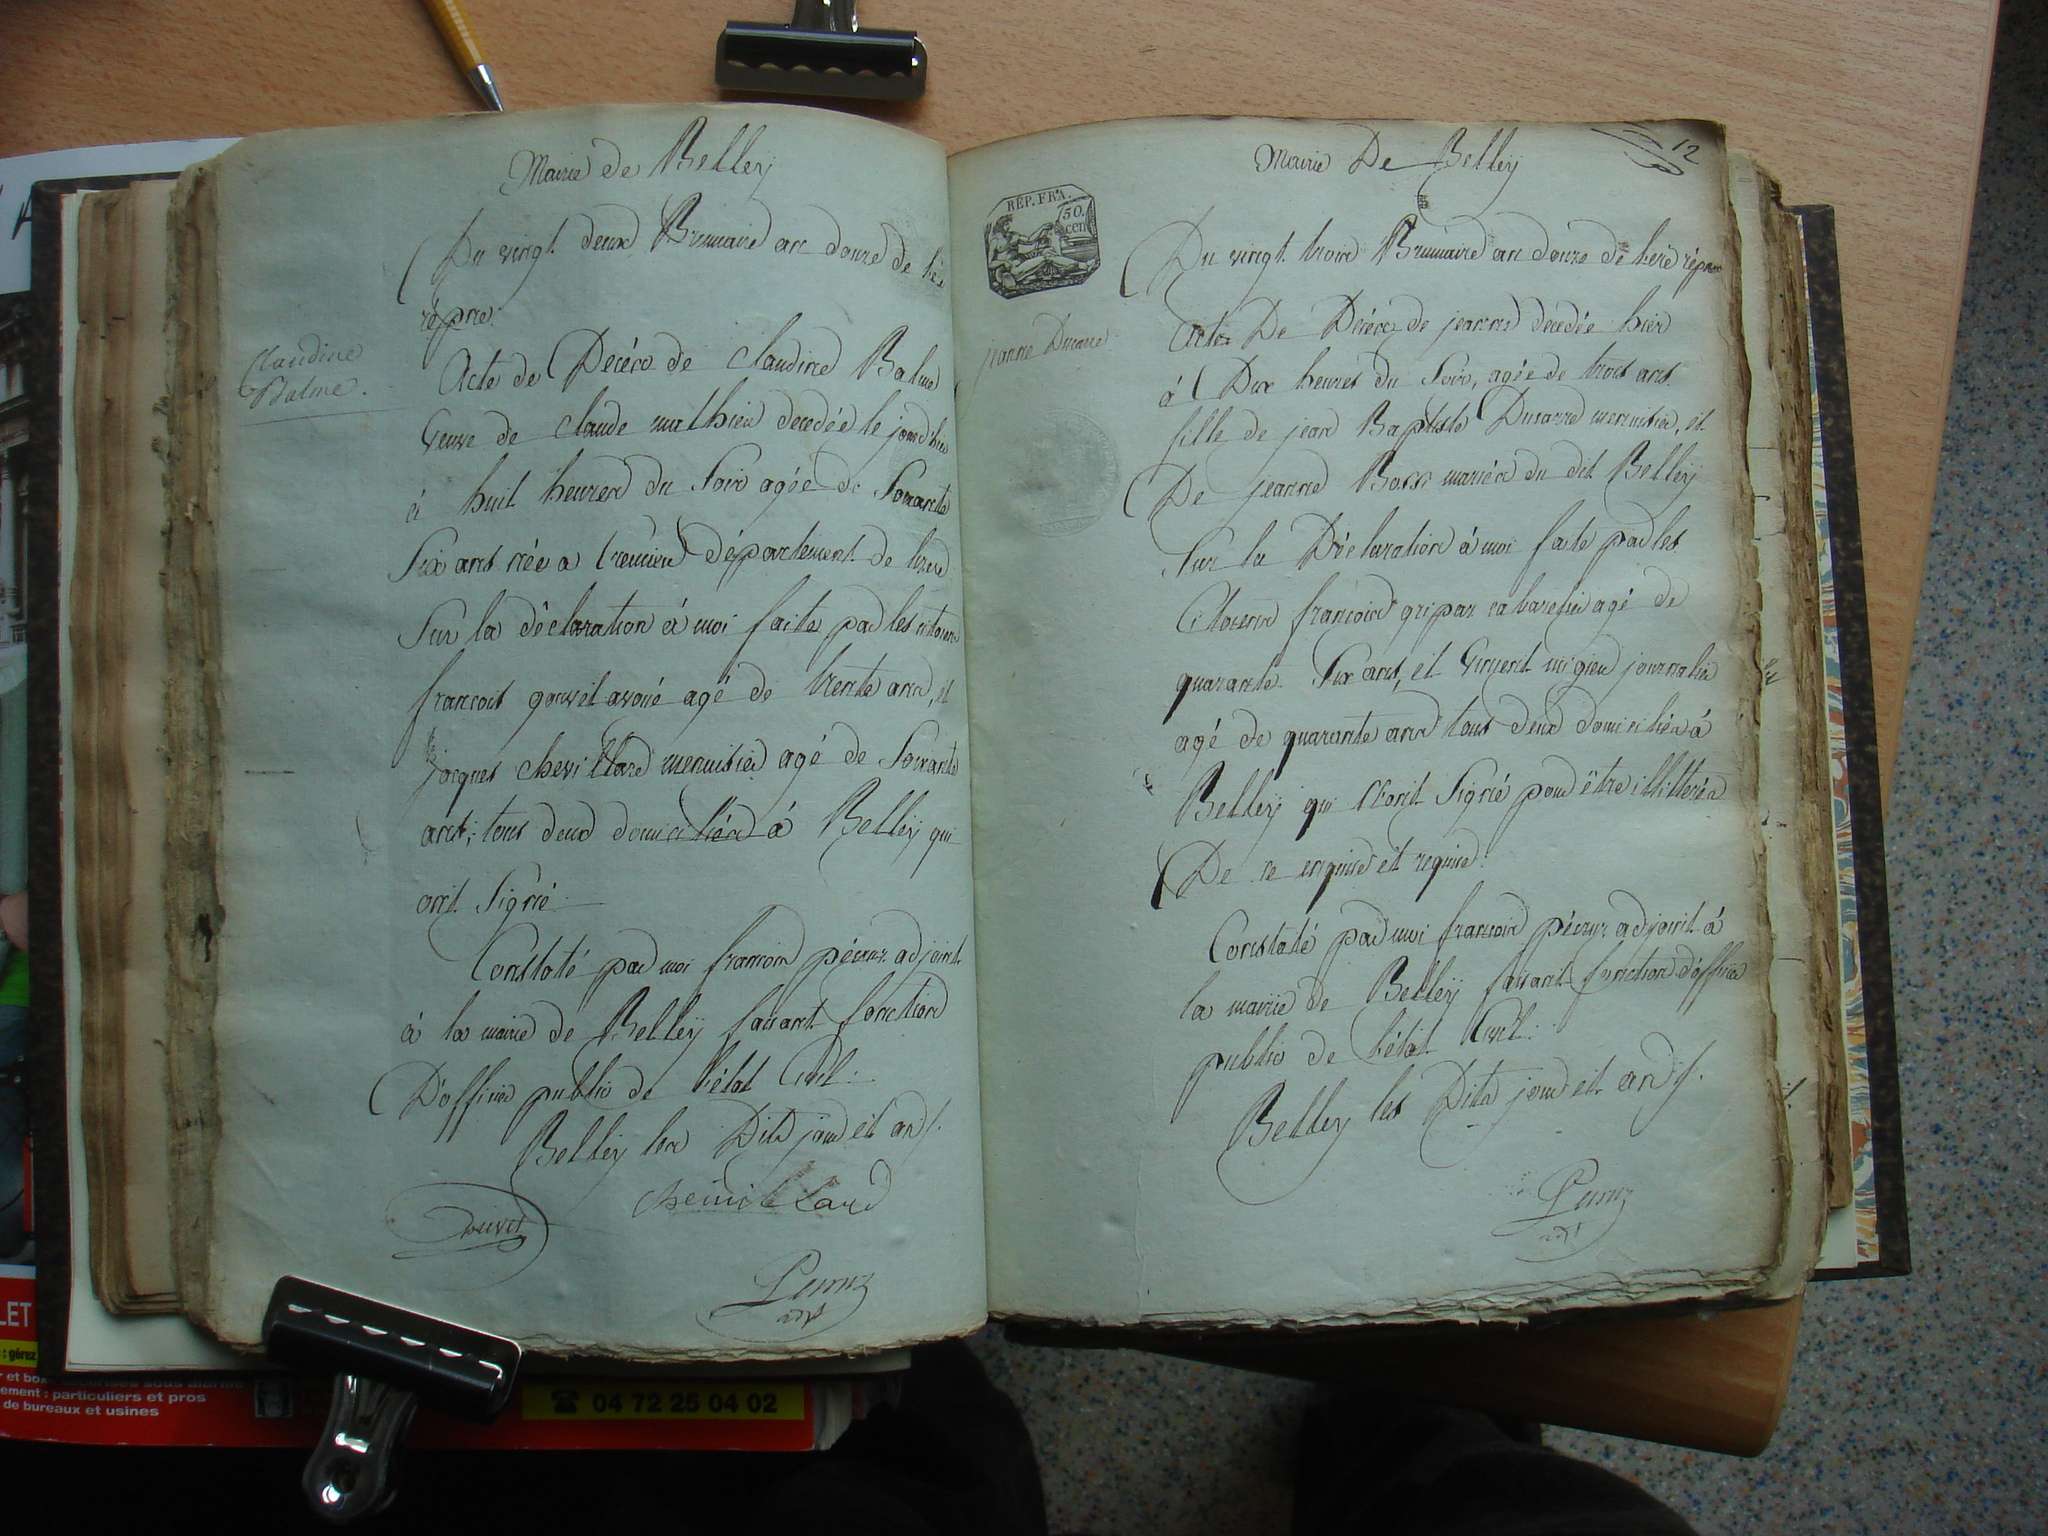 Mairie de Belleÿ
Du vingt deux Brumaire an douze de
répne.
Claudine
Balme.
Acte de Décéss de Claudine Balme
Veuve de Claude mathieu decedée le jourdhui
à huit heures du Soir agée de Soixante
Six ans née a département de
Sur la déclaration à moi faite par les citoyens
francois gouvet avoué agé de trente ans, et
jacques chevillard menuisier agé de Soixante
ans; tous deux domiciliés à Belleÿ qui
ont Signé
Constaté par moi francois adjoint
à la mairie de Belleÿ faisant fonction
D'officier public de l'état Civil:
Belleÿ les Dits jour et an
Gouvet
cheuillard
adjt
Mairie De Belley
12
RÉP. FRA.
50.
cen
Du vingt trois Brumaire an douze de l'ere
jeanne Ducarre
Acte De Décéss de jeanne decedée hier
à Dix heures du Soir, agée de trois ans
fille de jean Baptiste Ducarre menuisier, et
De jeanne mariés du dit Belleÿ
Sur la Déclaration à moi faite par les
Citoyens françois gripar cabaretier agé de
quarante Six ans, et Vincent migieu journalier
agé de quarante ans tous deux domiciliés à
Belleÿ qui n'ont Signé pour être illittérés
De ce enquis et requis:
Constaté par moi francois adjoint à
la mairie de Belleÿ faisant fonction d'officier
public de l'état Civil:
Belley les Dits jour et an
adjt
LET
: gérez
r et box
ement : particuliers et pros
de bureaux et usines
04 72 25 04 02